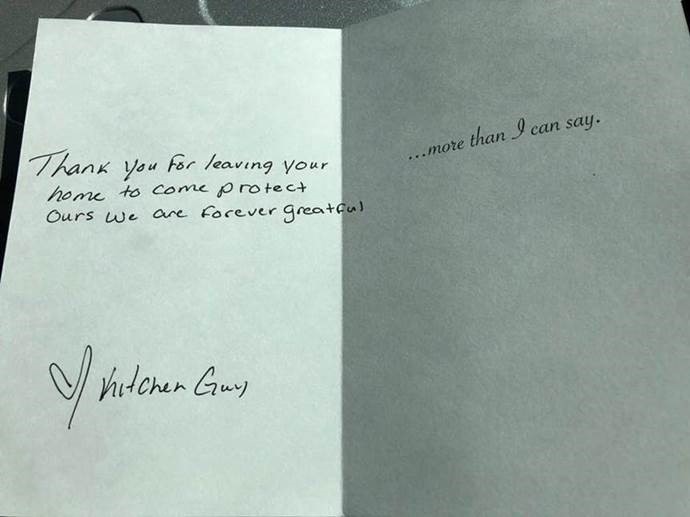 Thank you for leaving your
home to come protect
ours we are forever greatful
♡ Kitchen Guy
...more than I can say.